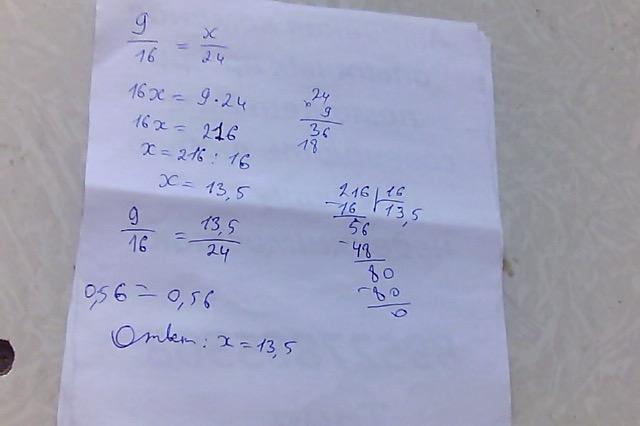 9/16 = x/24
16x = 9·24
16x = 216
x = 216 : 16
x = 13,5
9/16 = 13,5/24
0,56 = 0,56
Ответ: x = 13,5
24
× 9
36
18
216 | 16
-16 | 13,5
56
-48
80
-80
0